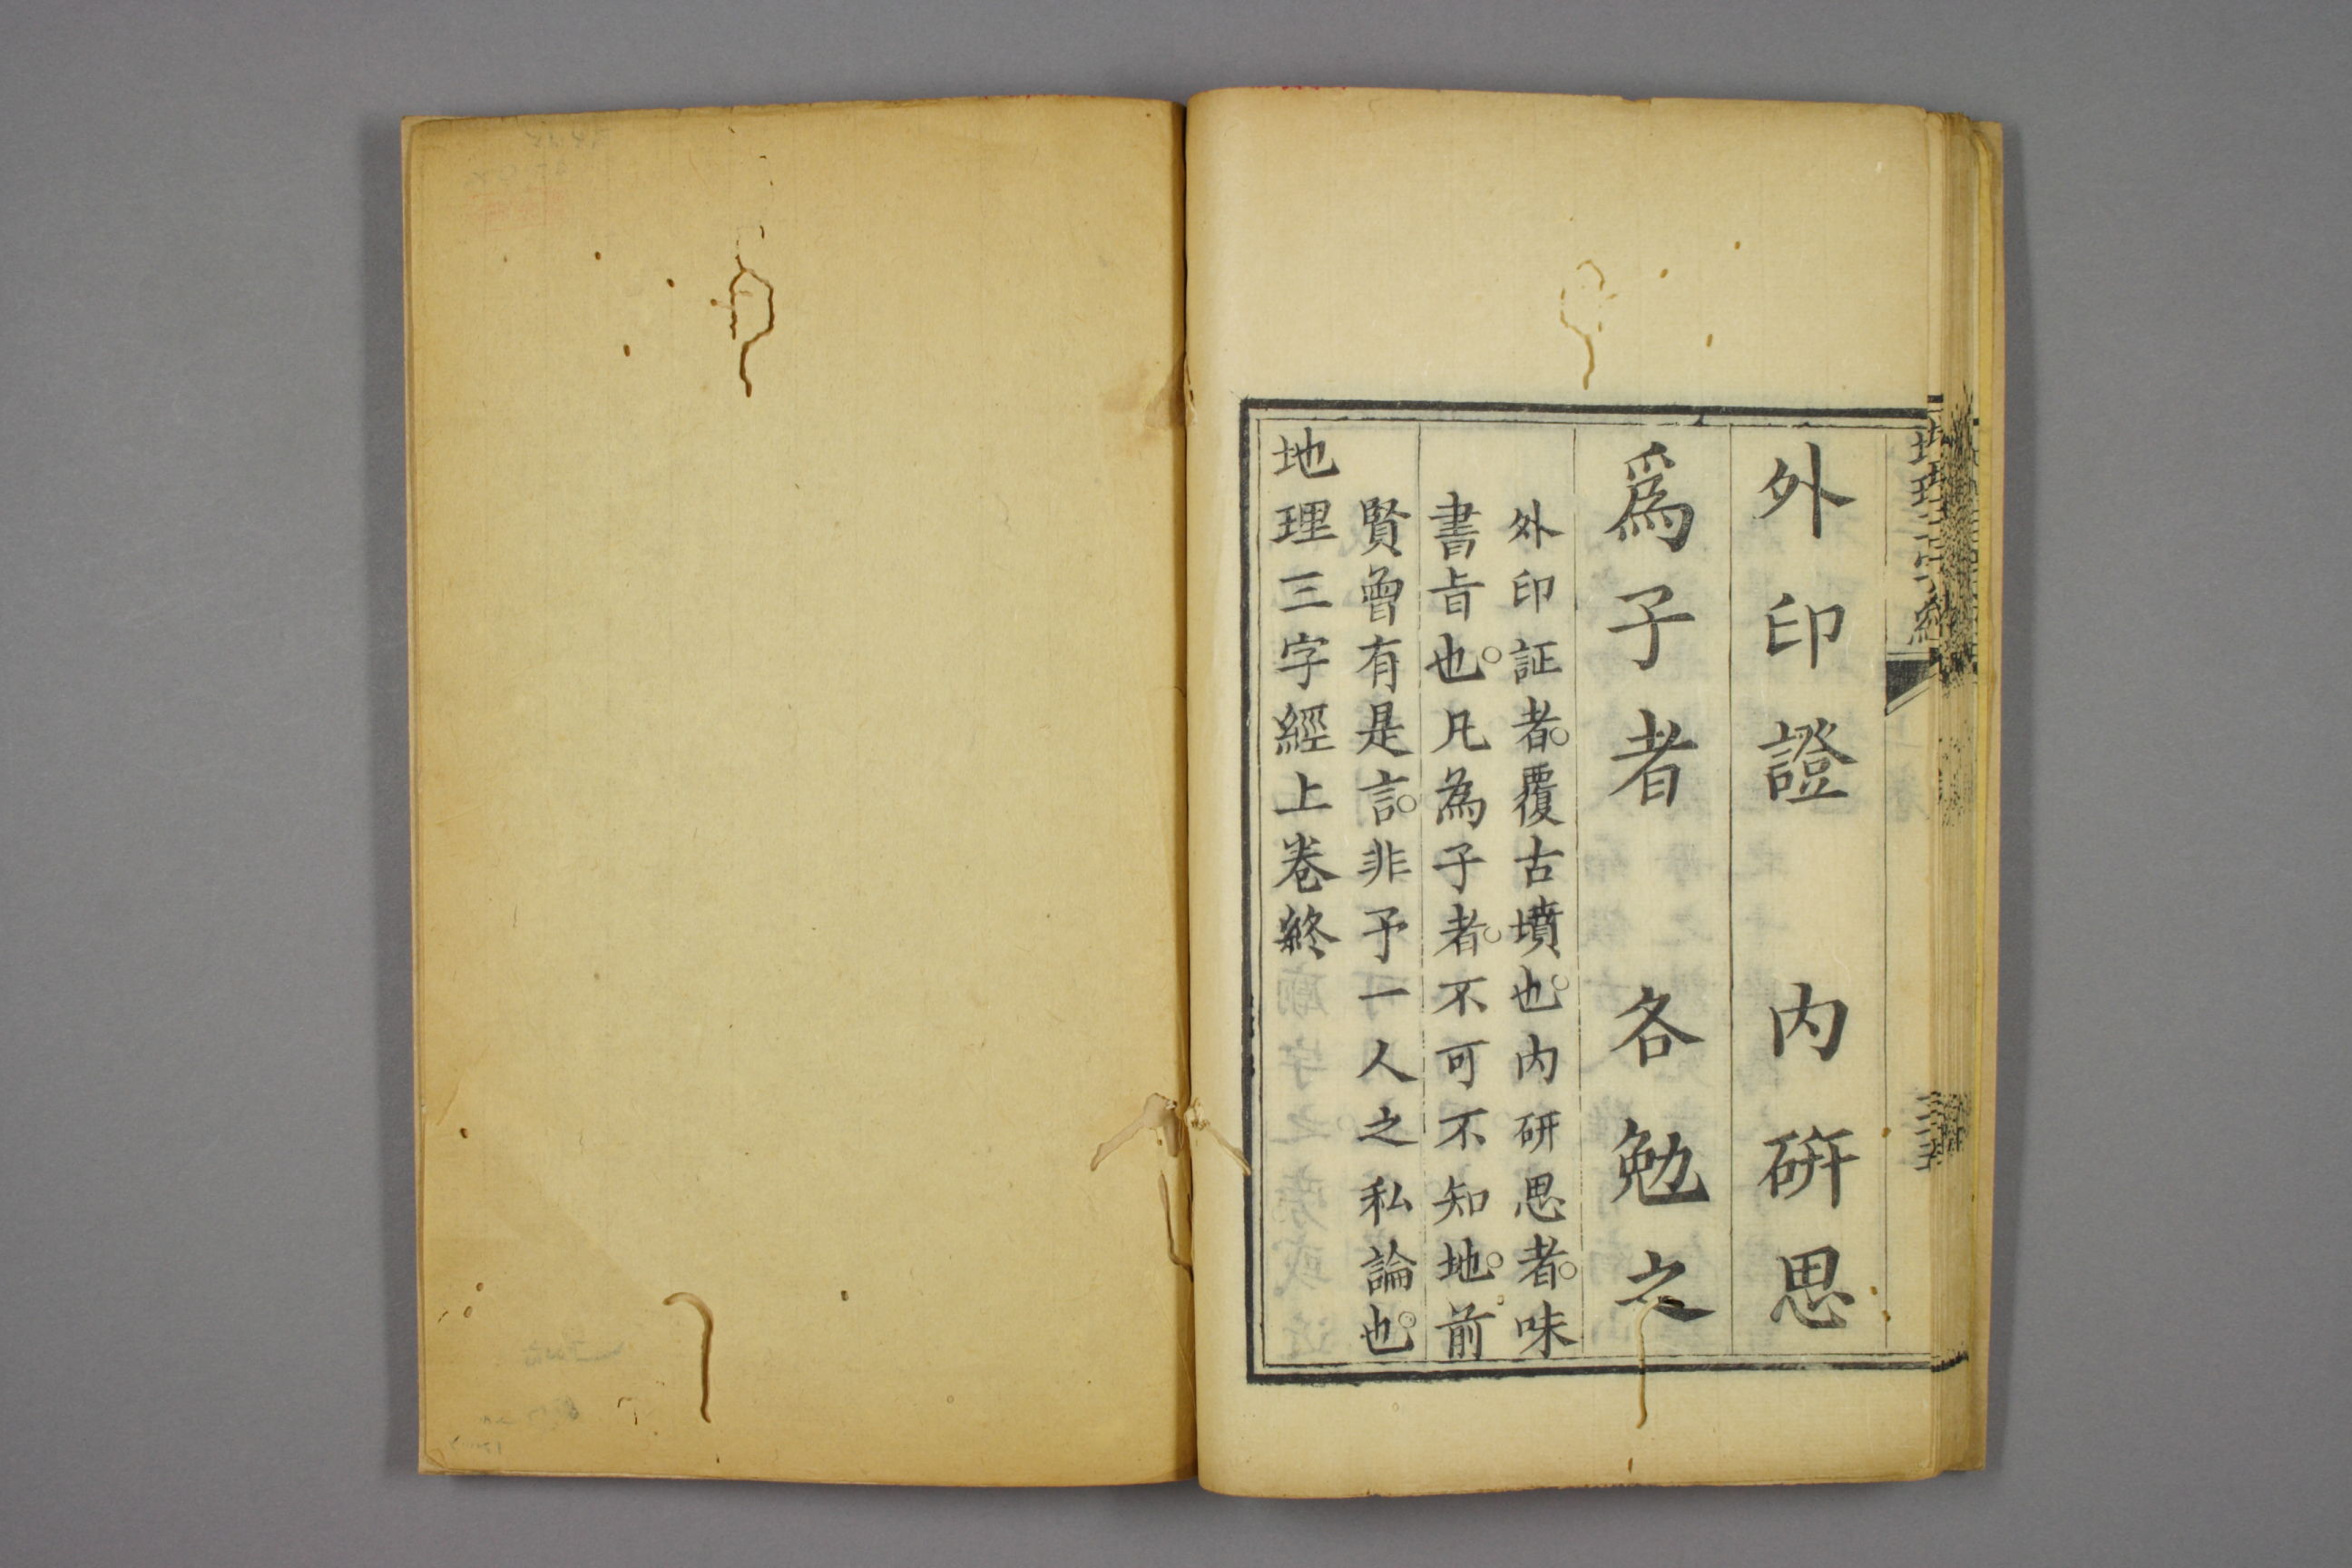 外印證 内研思
爲子者 各勉之
外印証者。覆古墳也。内研思者。味
書旨也。凡為子者。不可不知地。地前
賢曾有是言。非予一人之私論也。
地理三字經上卷終
地理三字經
三十五